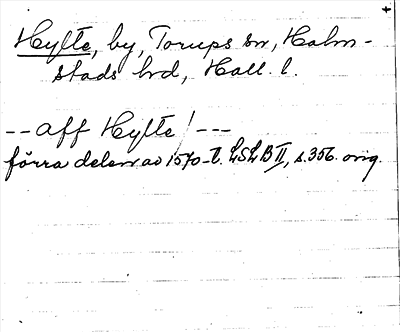 Hylte, by, Torups sn, Halm-
stads hd, Hall. l.
-- aff Hylte! ---
förra delen av 1570-t. LSLB II, s. 356. orig.